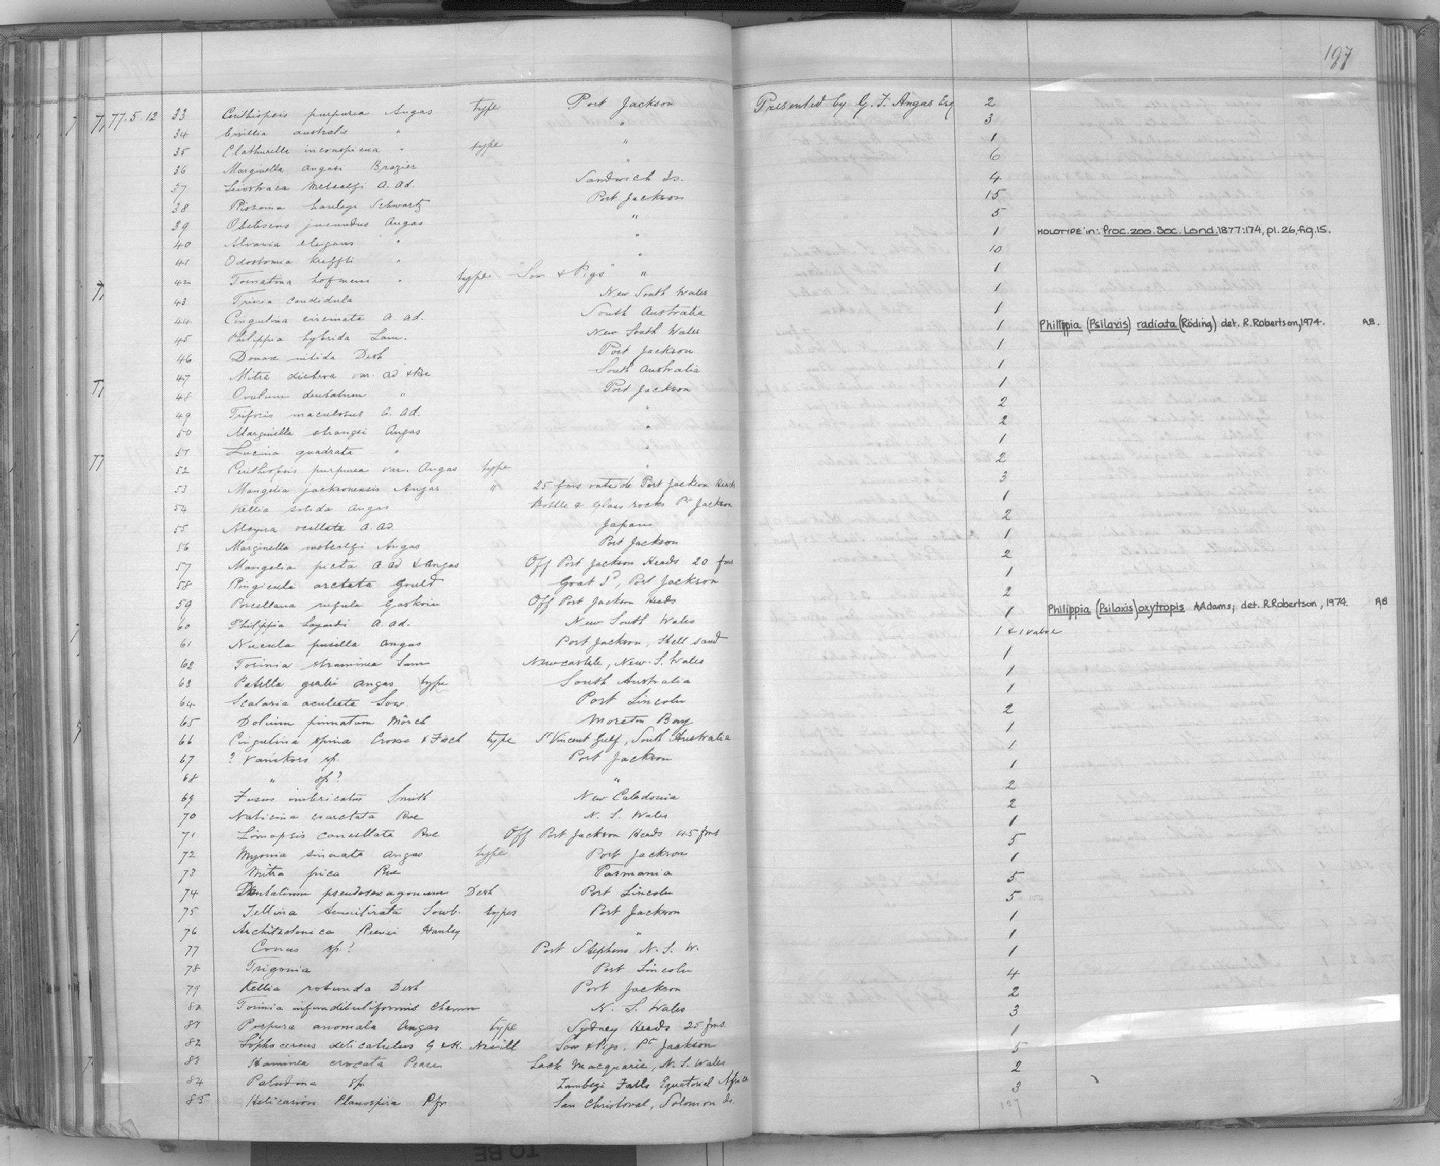 197
77.5.12 33 Cerithiopsis purpurea Angas type Port Jackson Presented by G. F. Angas Esq 2
34 Emillia australis " " 3
35 Clathurella inconspicua " type " 1
36 Marginella angasi Brazier " 6
37 Leiostraca metcalfei A. Ad. Sandwich Is. 4
38 Port Jackson 15
39 Obeliscus jucundus Angas " 5
40 Alvania elegans " " 1 HOLOTYPE in: Proc. zoo. Soc. Lond. 1877:174, pl. 26, fig. 15.
41 Odostomia krefftii " " 10
42 Tornatina hofmani " type "Sow & Pigs" " 1
43 Trivia candidula New South Wales 1
44 Cingulina circinata A. Ad. South Australia 1
45 Philippia hybrida Lam. New South Wales 1 Philippia (Psilaxis) radiata (Röding) det. R. Robertson, 1974. AB.
46 Donax nitida Desh Port Jackson 1
47 Mitra var. South Australia 1
48 Ovulum dentatum " Port Jackson 1
49 Triforis maculosus A. Ad. " 2
50 Marginella strangei Angas " 2
51 Lucina quadrata " 1
52 Cerithiopsis purpurea var. Angas type " 2
53 Mangelia jacksonensis Angas " 25 fms outside Port Jackson Heads 3
54 Kellia solida Angas Bottle & Glass rocks Pt Jackson 1
55 ocellata A. Ad. Japan 2
56 Marginella metcalfei Angas Port Jackson 1
57 Mangelia picta A. Ad & Angas Off Port Jackson Heads 20 fms 2
58 Ringicula arctata Gould Goat Id, Port Jackson 1
59 Porcellana rufula Gaskoin Off Port Jackson Heads 2
60 Philippia layardi A. Ad. New South Wales 1 Philippia (Psilaxis) oxytropis A Adams; det. R. Robertson, 1974. AB
61 Nucula pusilla Angas Port Jackson, Shell sand 1 & 1 valve
62 Torinia straminea Lam Newcastle, New S. Wales 1
63 Patella gealei Angas type South Australia 1
64 Scalaria aculeata Sow. Port Lincoln 1
65 Dolium Mörch Moreton Bay 2
66 Cingulina spina Crosse & Fisch type St Vincent Gulf, South Australia 1
67 ? Vanikoro sp. Port Jackson 1
68 " sp? " 1
69 Fusus imbricatus Smith New Caledonia 2
70 Naticina Rve N. S. Wales 2
71 Limopsis cancellata Rve Off Port Jackson Heads 45 fms 1
72 Myonia sinuata Angas type Port Jackson 5
73 Mitra pica Rve Tasmania 1
74 Dentalium pseudosexagonum Desh Port Lincoln 5
75 Tellina tenuilirata Sowb. types Port Jackson 5
76 Architectonica Reevei Hanley " 1
77 Conus sp? Port Stephens N. S. W. 1
78 Trigonia Port Lincoln 1
79 Kellia rotunda Desh Port Jackson 4
80 Torinia infundibuliformis Chemn N. S. Wales 2
81 Purpura anomala Angas type Sydney Heads 25 fms 3
82 Lophocercus delicatulus G & H. Nevill Sow & Pigs, Pt Jackson 1
83 Haminea crocata Pease Lack Macquarie, N. S. Wales 5
84 Paludina sp Zambezi Falls Equatorial Africa 2
85 Helicarion Planospira Pfr San Christoval, Solomon Is. 3
197
TO BE